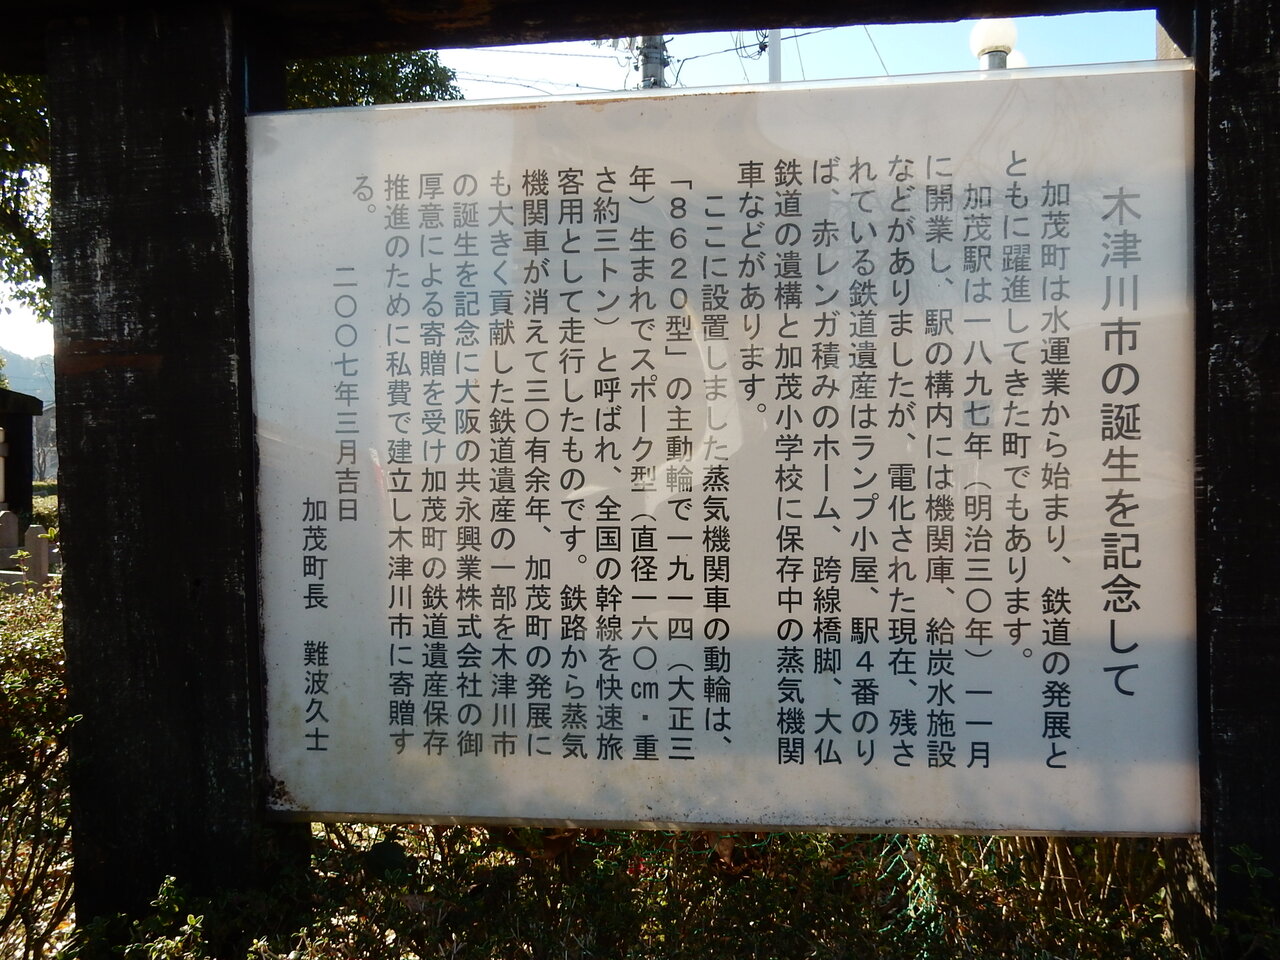 木津川市の誕生を記念して
加茂町は水運業から始まり、鉄道の発展と
ともに躍進してきた町でもあります。
加茂駅は一八九七年（明治三〇年）一一月
に開業し、駅の構内には機関庫、給炭水施設
などがありましたが、電化された現在、残さ
れている鉄道遺産はランプ小屋、駅４番のり
ば、赤レンガ積みのホーム、跨線橋脚、大仏
鉄道の遺構と加茂小学校に保存中の蒸気機関
車などがあります。
ここに設置しました蒸気機関車の動輪は、
「８６２０型」の主動輪で一九一四（大正三
年）生まれでスポーク型（直径一六〇㎝・重
さ約三トン）と呼ばれ、全国の幹線を快速旅
客用として走行したものです。鉄路から蒸気
機関車が消えて三〇有余年、加茂町の発展に
も大きく貢献した鉄道遺産の一部を木津川市
の誕生を記念に大阪の共永興業株式会社の御
厚意による寄贈を受け加茂町の鉄道遺産保存
推進のために私費で建立し木津川市に寄贈す
る。
二〇〇七年三月吉日
加茂町長　難波久士